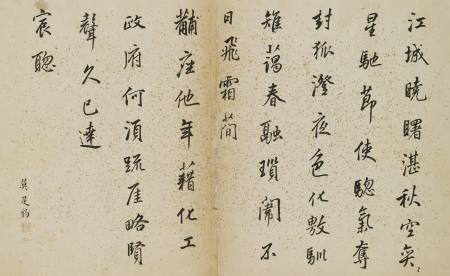 江城曉曙湛秋空奕〻
星馳節使驄氣奪
封狐澄夜色化敷馴
雉藹春融瑣闈不
日飛霜簡
黼座他年藉化工
政府何須疏略賢
聲久已達
宸聰
莫是